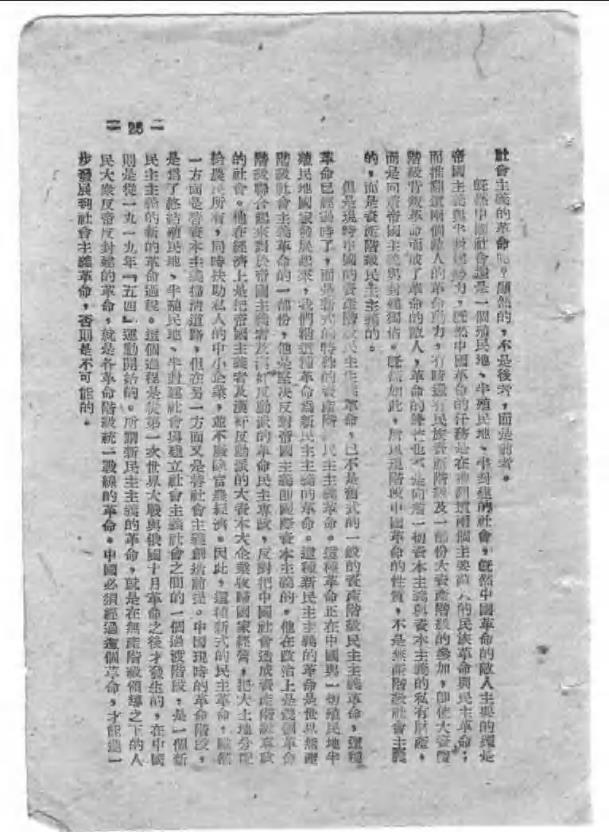 社會主義的革命呢？顯然的，不是後者，而是前者。
既然中國社會還是一個殖民地、半殖民地、半封建的社會，既然中國革命的敵人主要的還是
帝國主義與半封建勢力，既然中國革命的任務是在推翻這兩個主要敵人的民族革命與民主革命；
而推翻這兩個敵人的革命動力，有時還有民族資產階級及一部份大資產階級的參加，即使大資產
階級背叛革命而成了革命的敵人，革命的鋒芒也不是向着一切資本主義與資本主義的私有財產，
而是向着帝國主義與封建獨佔。既然如此，所以現階段中國革命的性質，不是無產階級社會主義
的，而是資產階級民主主義的。
但是現時中國的資產階級民主主義革命，已不是舊式的一般的資產階級民主主義革命，這種
革命已經過時了，而是新式的特殊的資產階級民主主義革命。這種革命正在中國與一切殖民地半
殖民地國家發展起來，我們稱這種革命為新民主主義的革命。這種新民主主義的革命是世界無產
階級社會主義革命的一部份，他是堅決反對帝國主義即國際資本主義的。他在政治上是幾個革命
階級聯合起來對於帝國主義者及漢奸反動派的革命民主專政，反對把中國社會造成資產階級專政
的社會。他在經濟上是把帝國主義者及漢奸反動派的大資本大企業收歸國家經營，把大土地分配
給農民所有，同時扶助私人的中小企業，並不廢除富農經濟。因此，這種新式的民主革命，雖然
一方面是替資本主義掃清道路，但在另一方面又是替社會主義創造前提。中國現時的革命階段，
是為了終結殖民地、半殖民地、半封建社會與建立社會主義社會之間的一個過渡階段，是一個新
民主主義的新的革命過程。這個過程是從第一次世界大戰與俄國十月革命之後才發生的，在中國
則是從一九一九年『五四』運動開始的。所謂新民主主義的革命，就是在無產階級領導之下的人
民大衆反帝反封建的革命，就是各革命階級統一戰線的革命。中國必須經過這個革命，才能進一
步發展到社會主義革命，否則是不可能的。
26